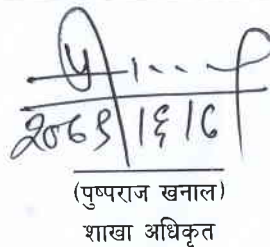 २०६९|६|८
(पुष्पराज खनाल)
शाखा अधिकृत